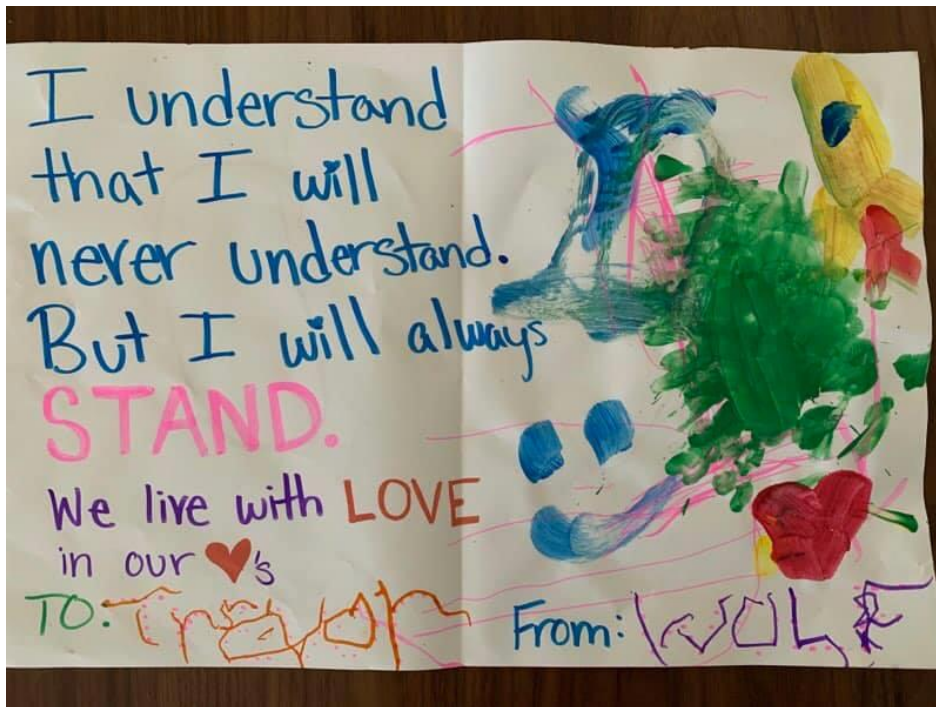 I understand
that I will
never understand.
But I will always
STAND.
We live with LOVE
in our ♥'s
TO: Trayon From: WOLF